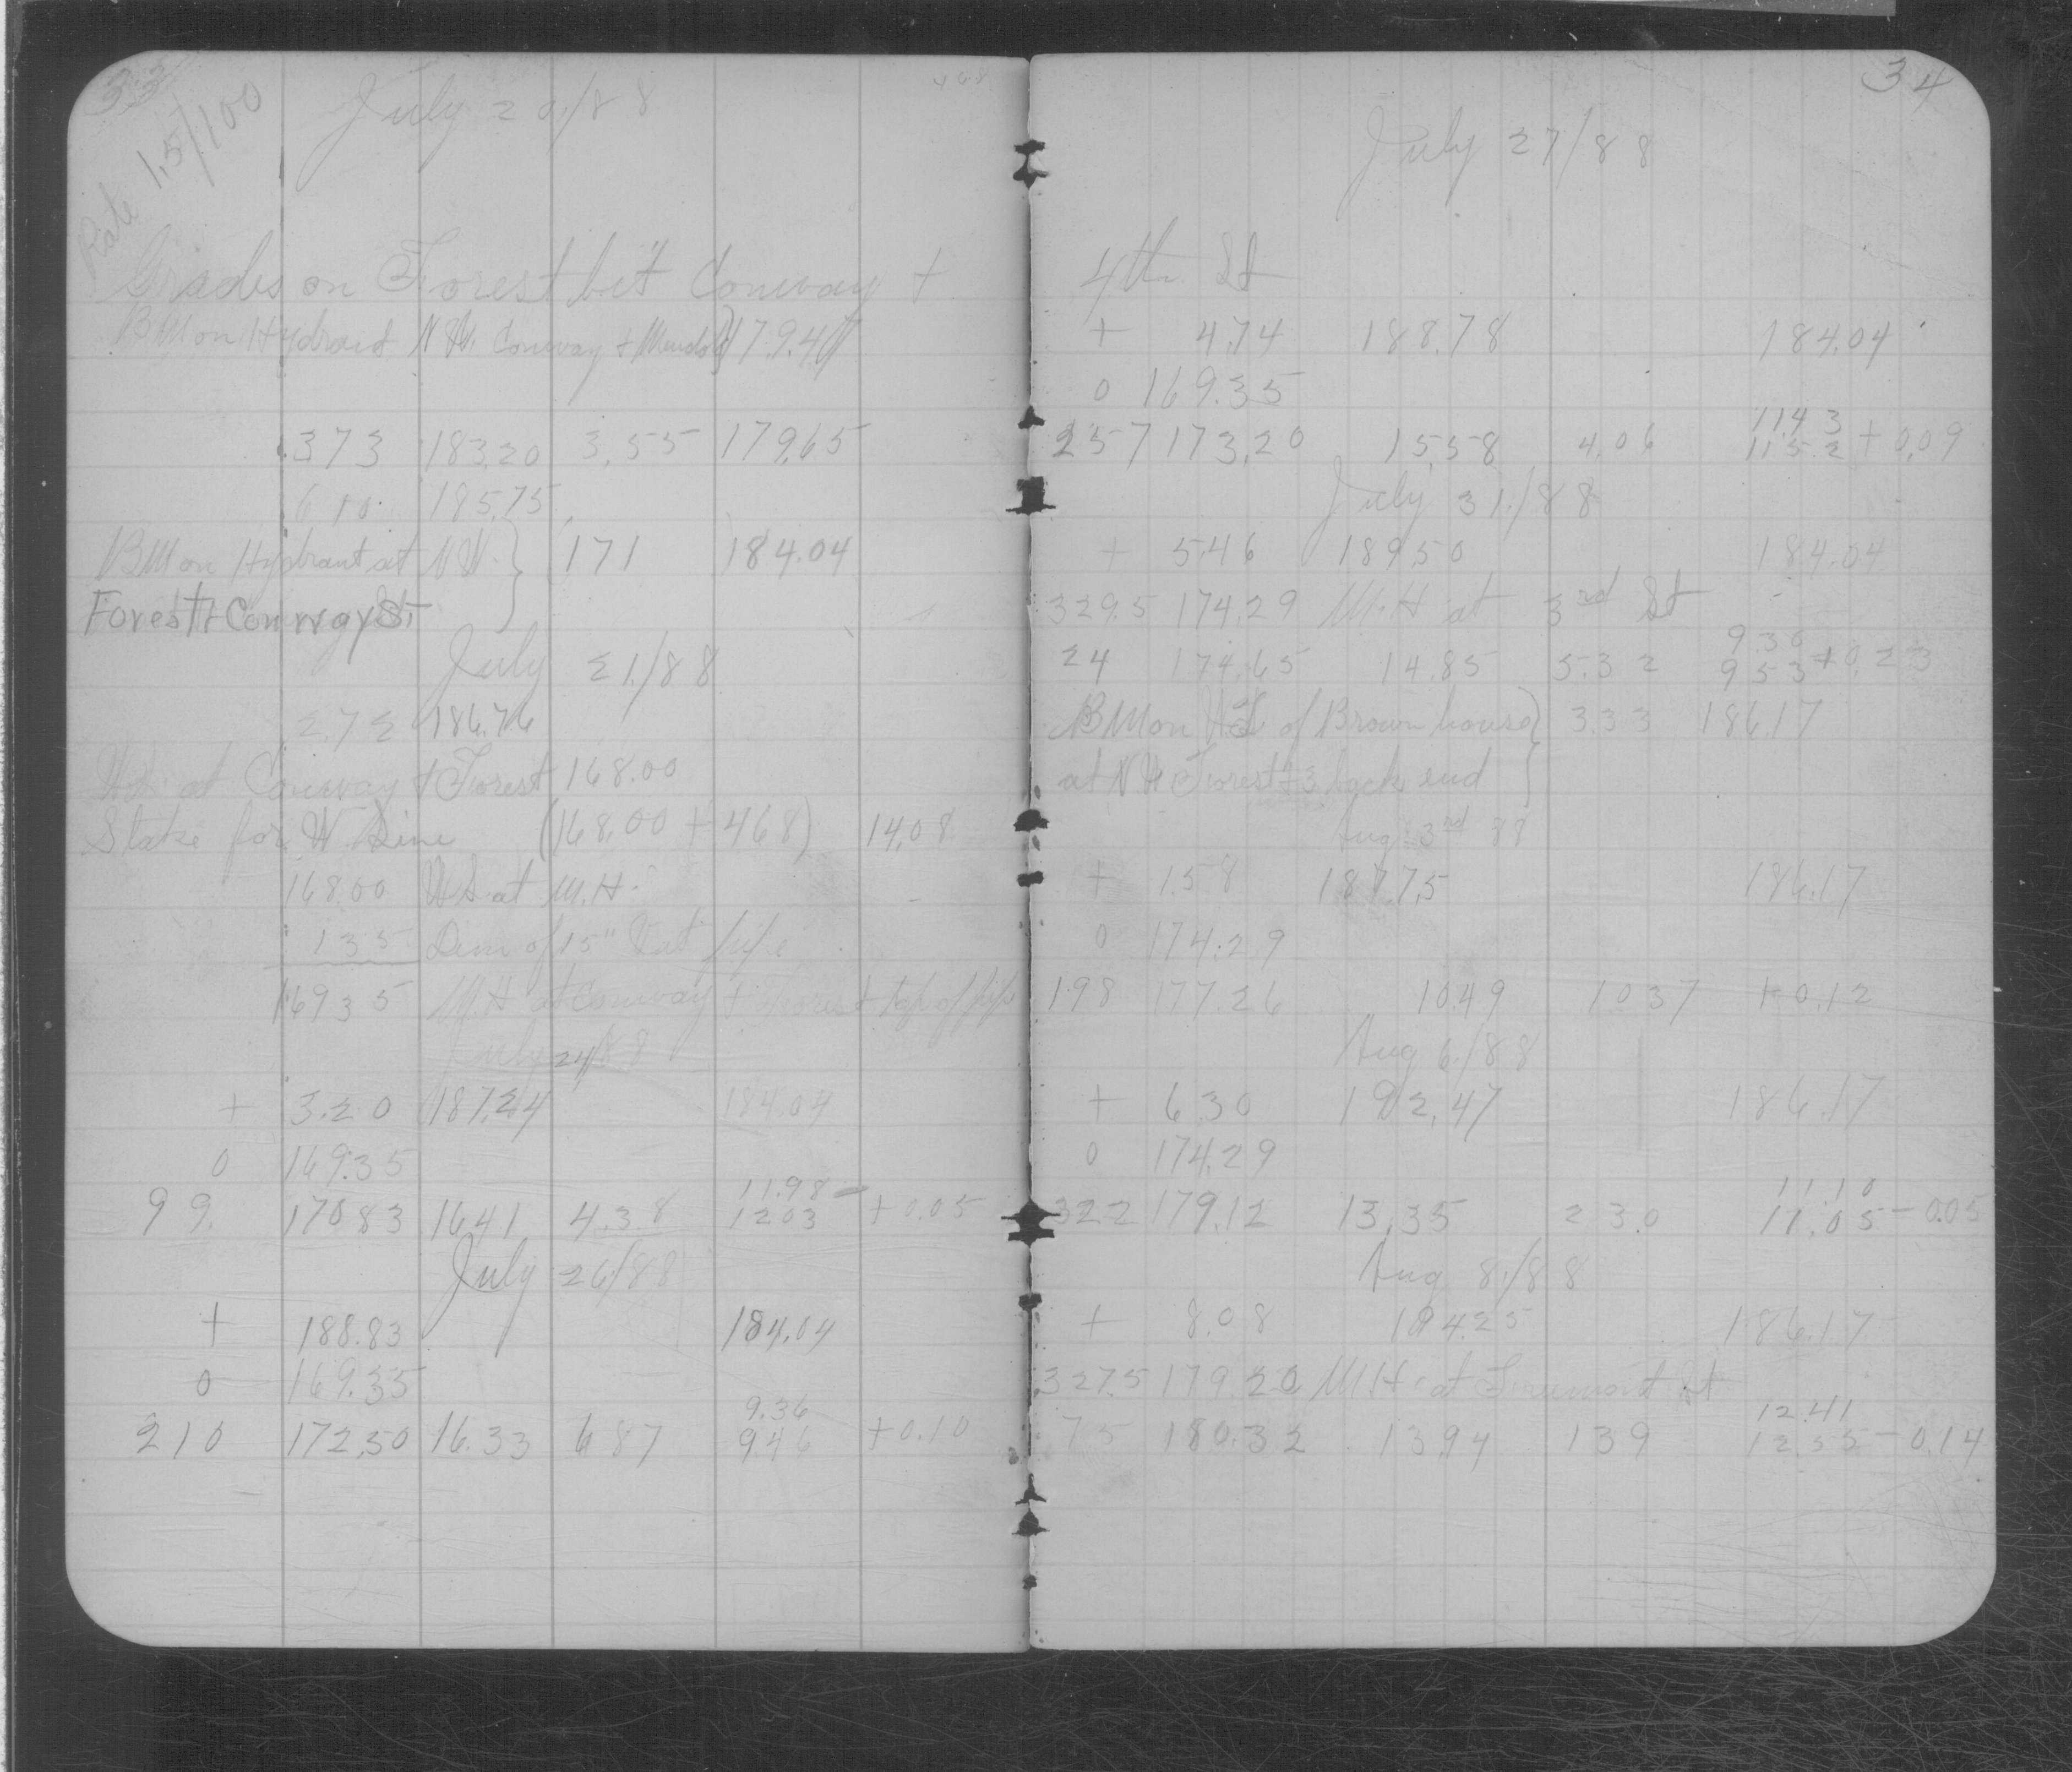 33
Rate 1.5/100
468
July 20/88
Grades on Forest bet Conway +
BM on Hydrant N.W. Conway + Mendota} 179.47
3 73 183.20 3.55 179.65
6 10 185.75
BM on Hydrant at N.W. } 171 184.04
Forest + Conway St
July 21/88
2.72 186.76
W.S. at Conway + Forest 168.00
Stake for W. Line (168.00 + 468) 14.08
168.00 W.S. at M.H.
1 35 Dim of 15" Vit pipe
169 35 M.H at Conway + Forest top of pipe
July 24/88
+ 3.20 187.24 184.04
0 169.35
11.98
99 170 83 16 41 4.38 12 03 + 0.05
July 26/88
+ 188.83 184.04
0 169.35
9.36
210 172.50 16.33 6 87 9.46 +0.10
34
July 27/88
4th St
+ 4.74 188.78 184.04
0 169.35
11.43
257 173.20 15.58 4.06 11.52 + 0.09
July 31/88
+ 5.46 189.50 184.04
329.5 174.29 M.H at 3rd St
9 30
24 174.65 14.85 5.32 9 53 +0.23
BM on of Brown house } 3.33 186.17
at N W Forest + 3 back end }
Aug 3rd 88
+ 1.58 187.75 186.17
0 174.29
198 177.26 10.49 10 37 + 0.12
Aug 6/88
+ 6 30 192.47 186.17
0 174.29
11.10
322 179.12 13.35 2 30 11.05 - 0.05
Aug 8/88
+ 8.08 194.25 186.17
327.5 179.20 M.H. at Fremont St
12.41
75 180.32 13.94 1 39 12.55 - 0.14